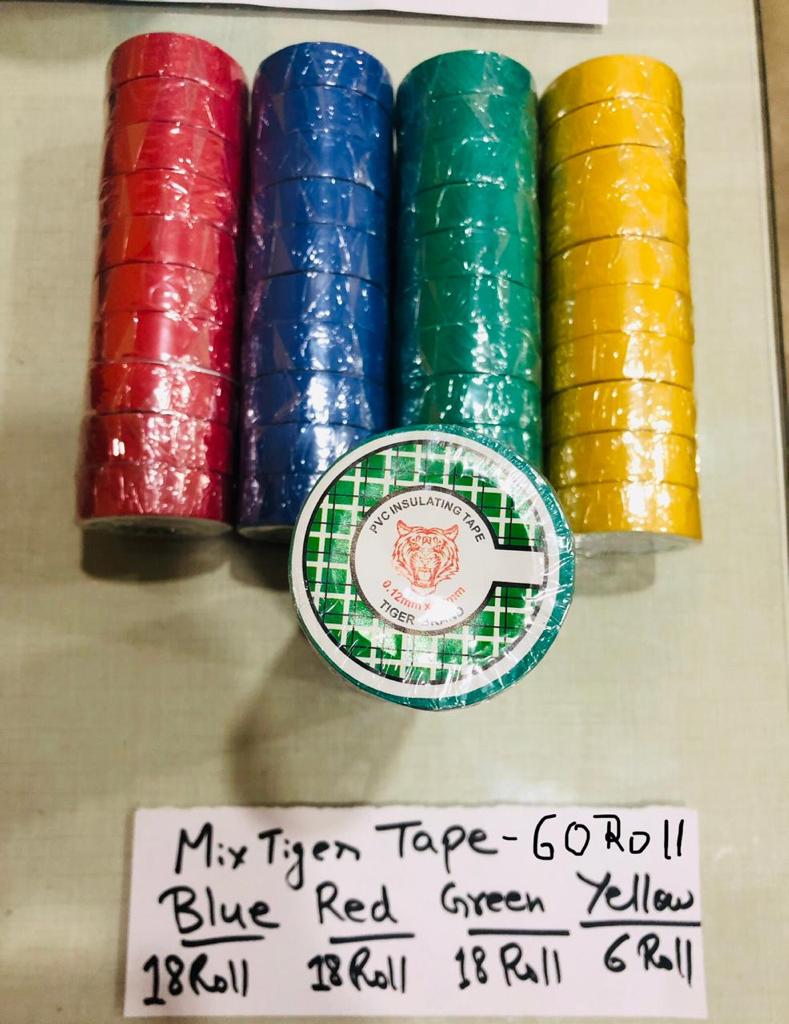 PVC INSULATING TAPE
0.12mm x
TIGER BRAND
Mix Tiger Tape - 60 Roll
Blue Red Green Yellow
18 Roll 18 Roll 18 Roll 6 Roll